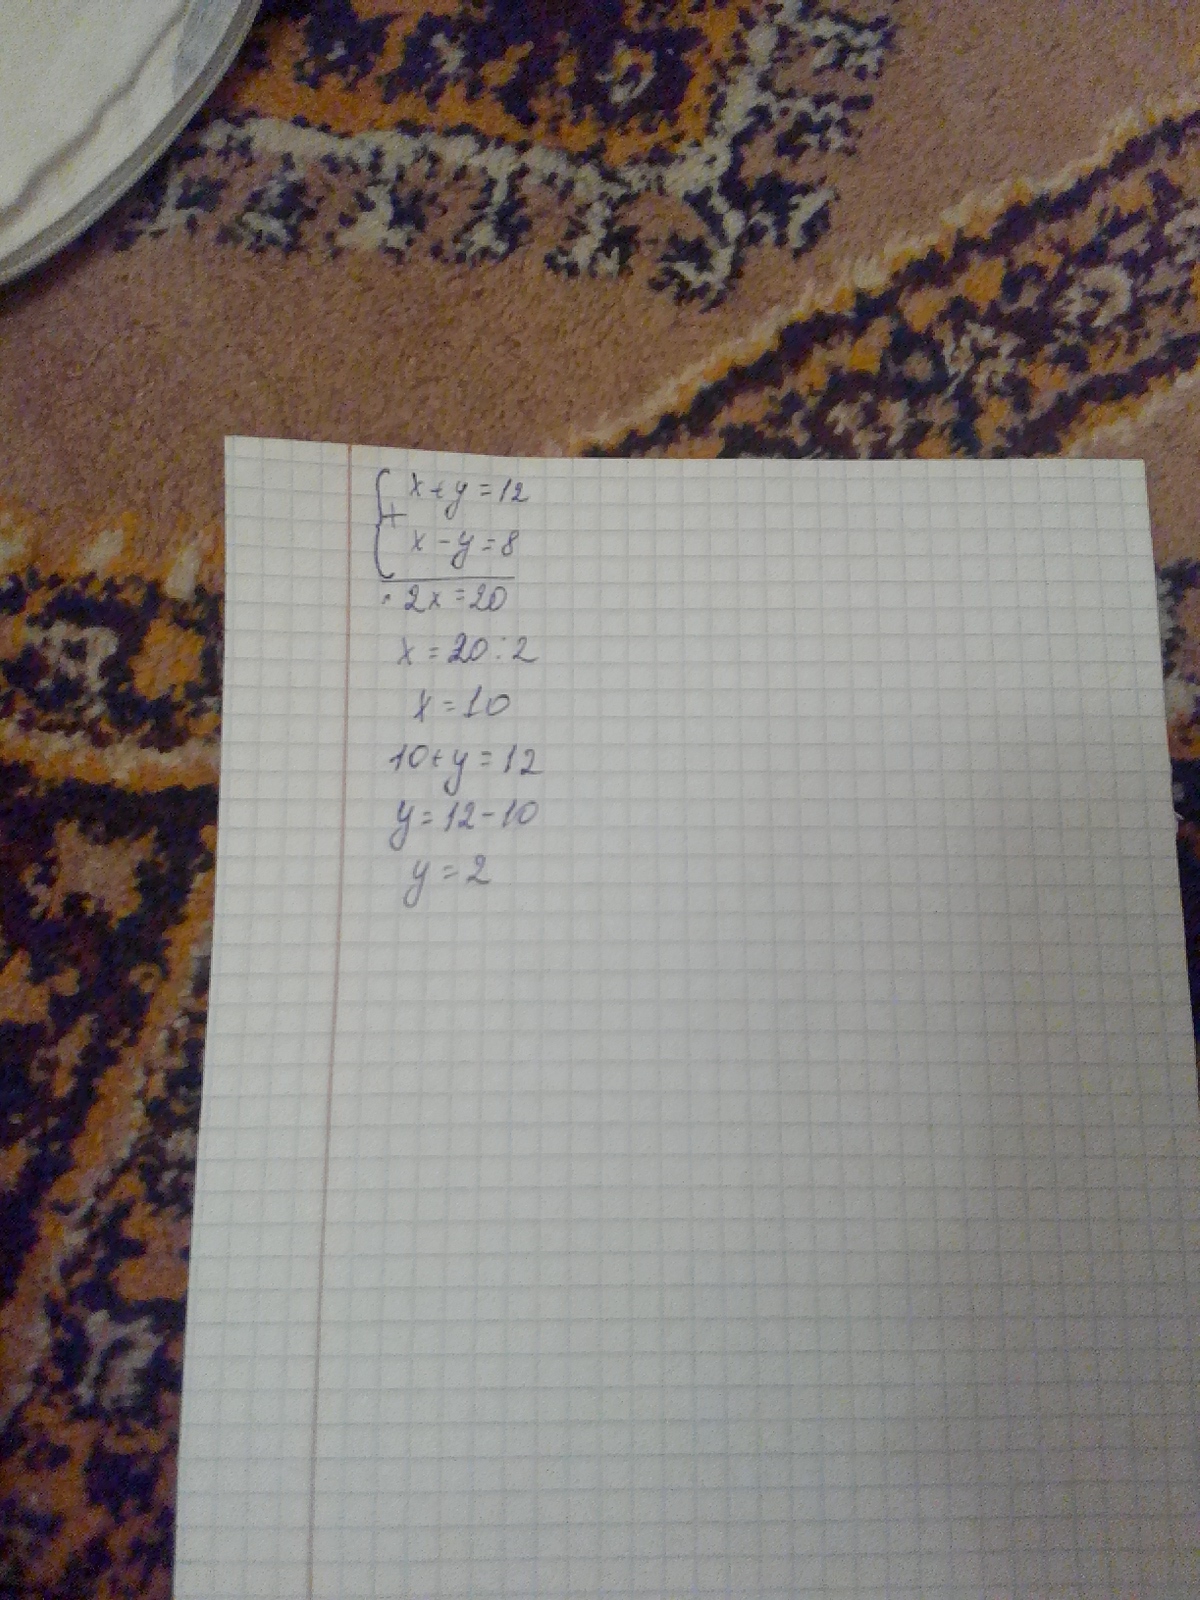 { x+y=12
+
x-y=8
2x=20
x=20:2
x=10
10+y=12
y=12-10
y=2